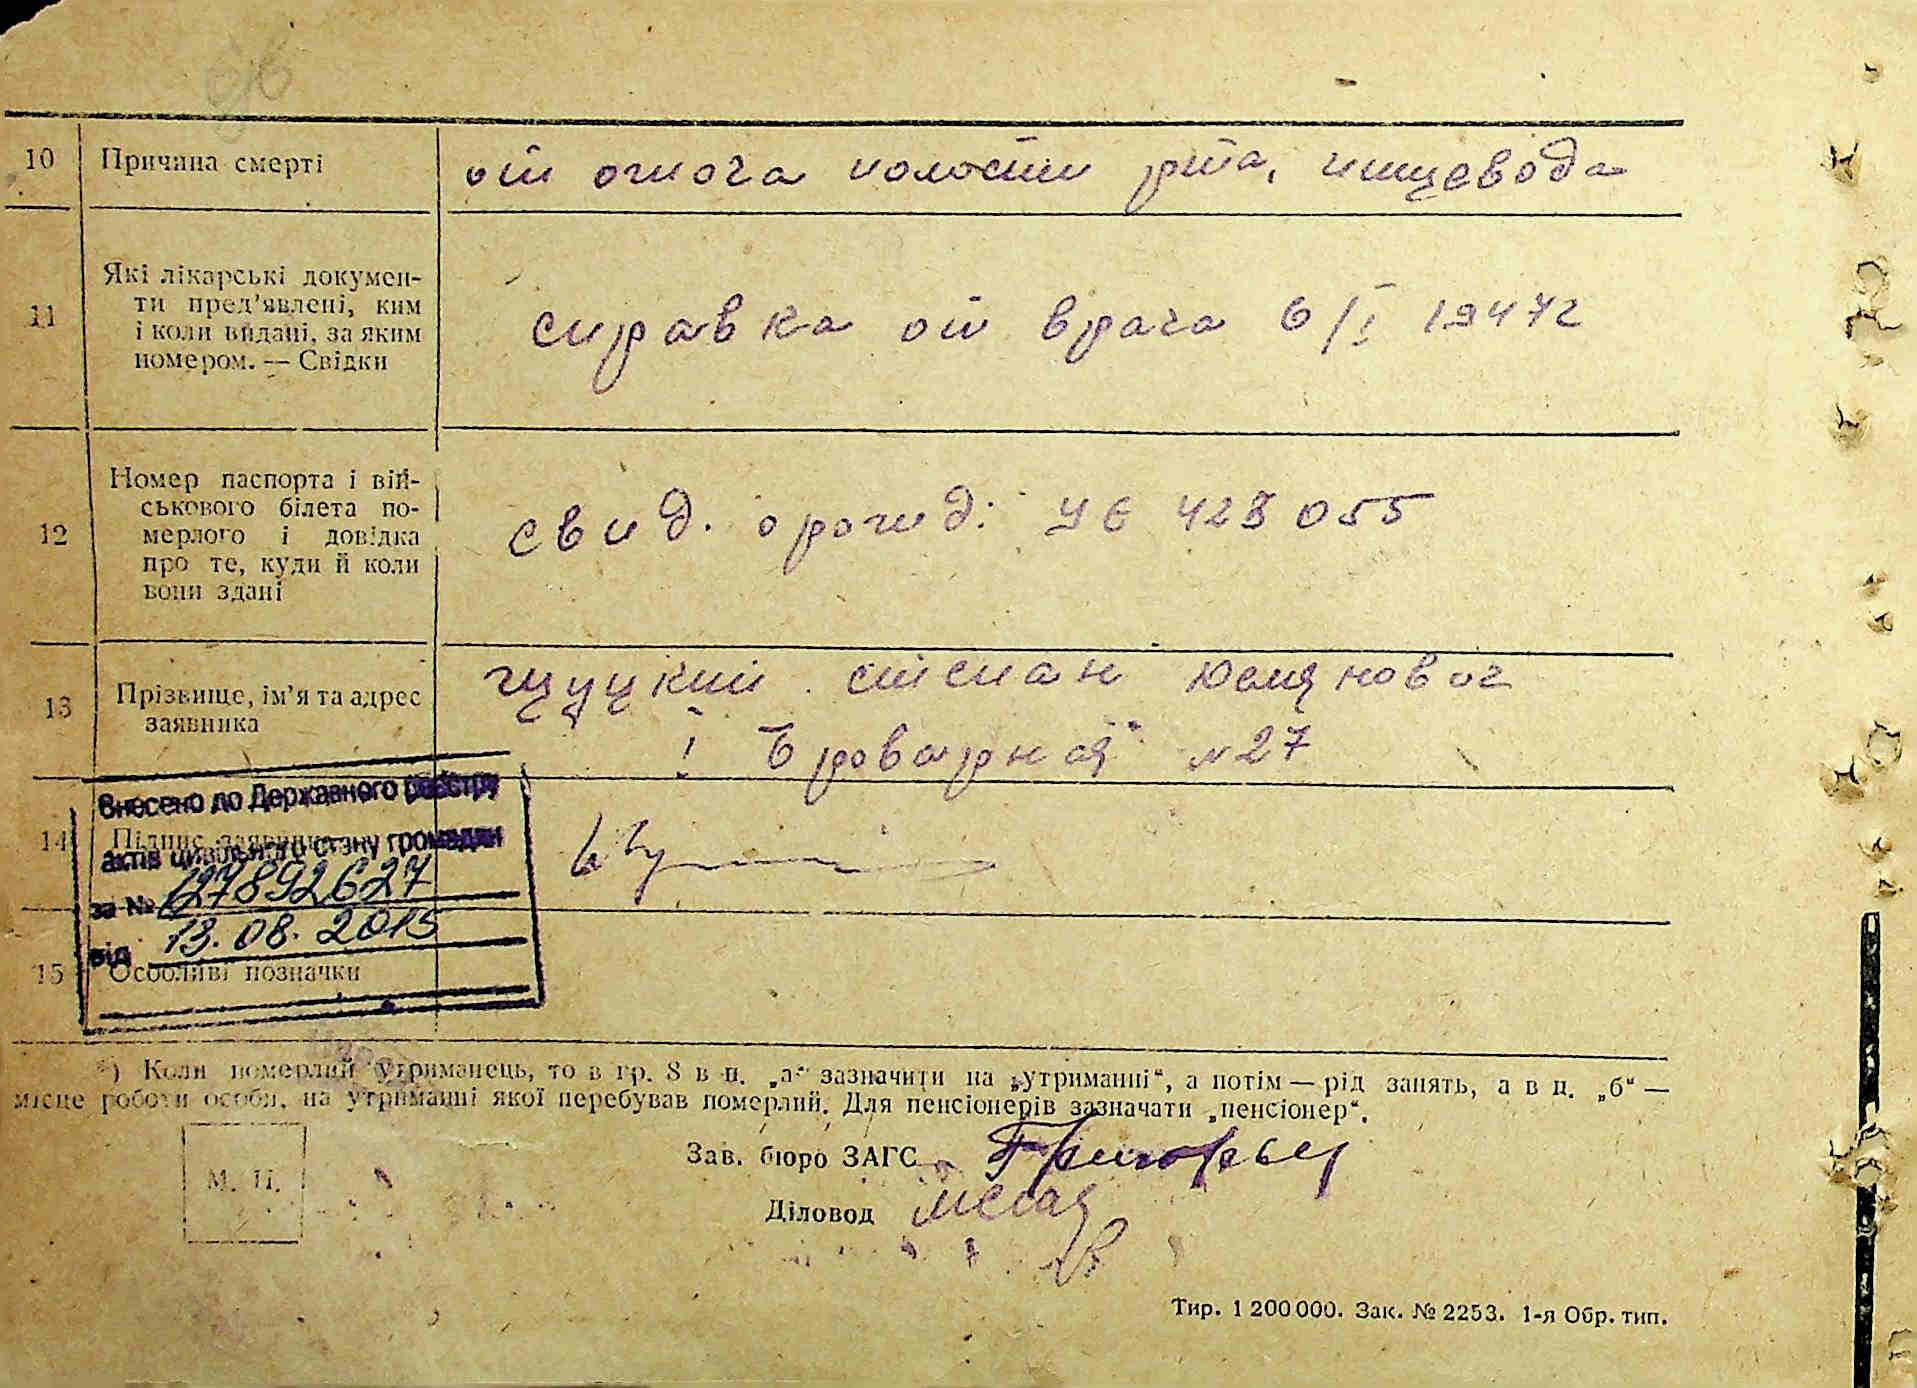 10 Причина смерті от ожога полости рта, пищевода
11 Які лікарські докумен-
ти пред'явлені, ким
і коли видані, за яким
номером. — Свідки
справка от врача 6/I 1947г
12 Номер паспорта і вій-
ськового білета по-
мерлого і довідка
про те, куди й коли
вони здані
свид. о рожд: УБ 423055
13 Прізвище, ім'я та адрес
заявника
степан
Броварная №27
14 Підпис заявника
Внесено до Державного реєстру
актів цивільного стану громадян
за № 127892627
від 13.08.2013
15 Особливі позначки
*) Коли померлий утриманець, то в гр. 8 в п. „а" зазначити на „утриманні", а потім — рід занять, а в п. „б" —
місце роботи особи, на утриманні якої перебував померлий. Для пенсіонерів зазначати „пенсіонер".
М. П.
Зав. бюро ЗАГС
Діловод
Тир. 1 200 000. Зак. № 2253. 1-я Обр. тип.